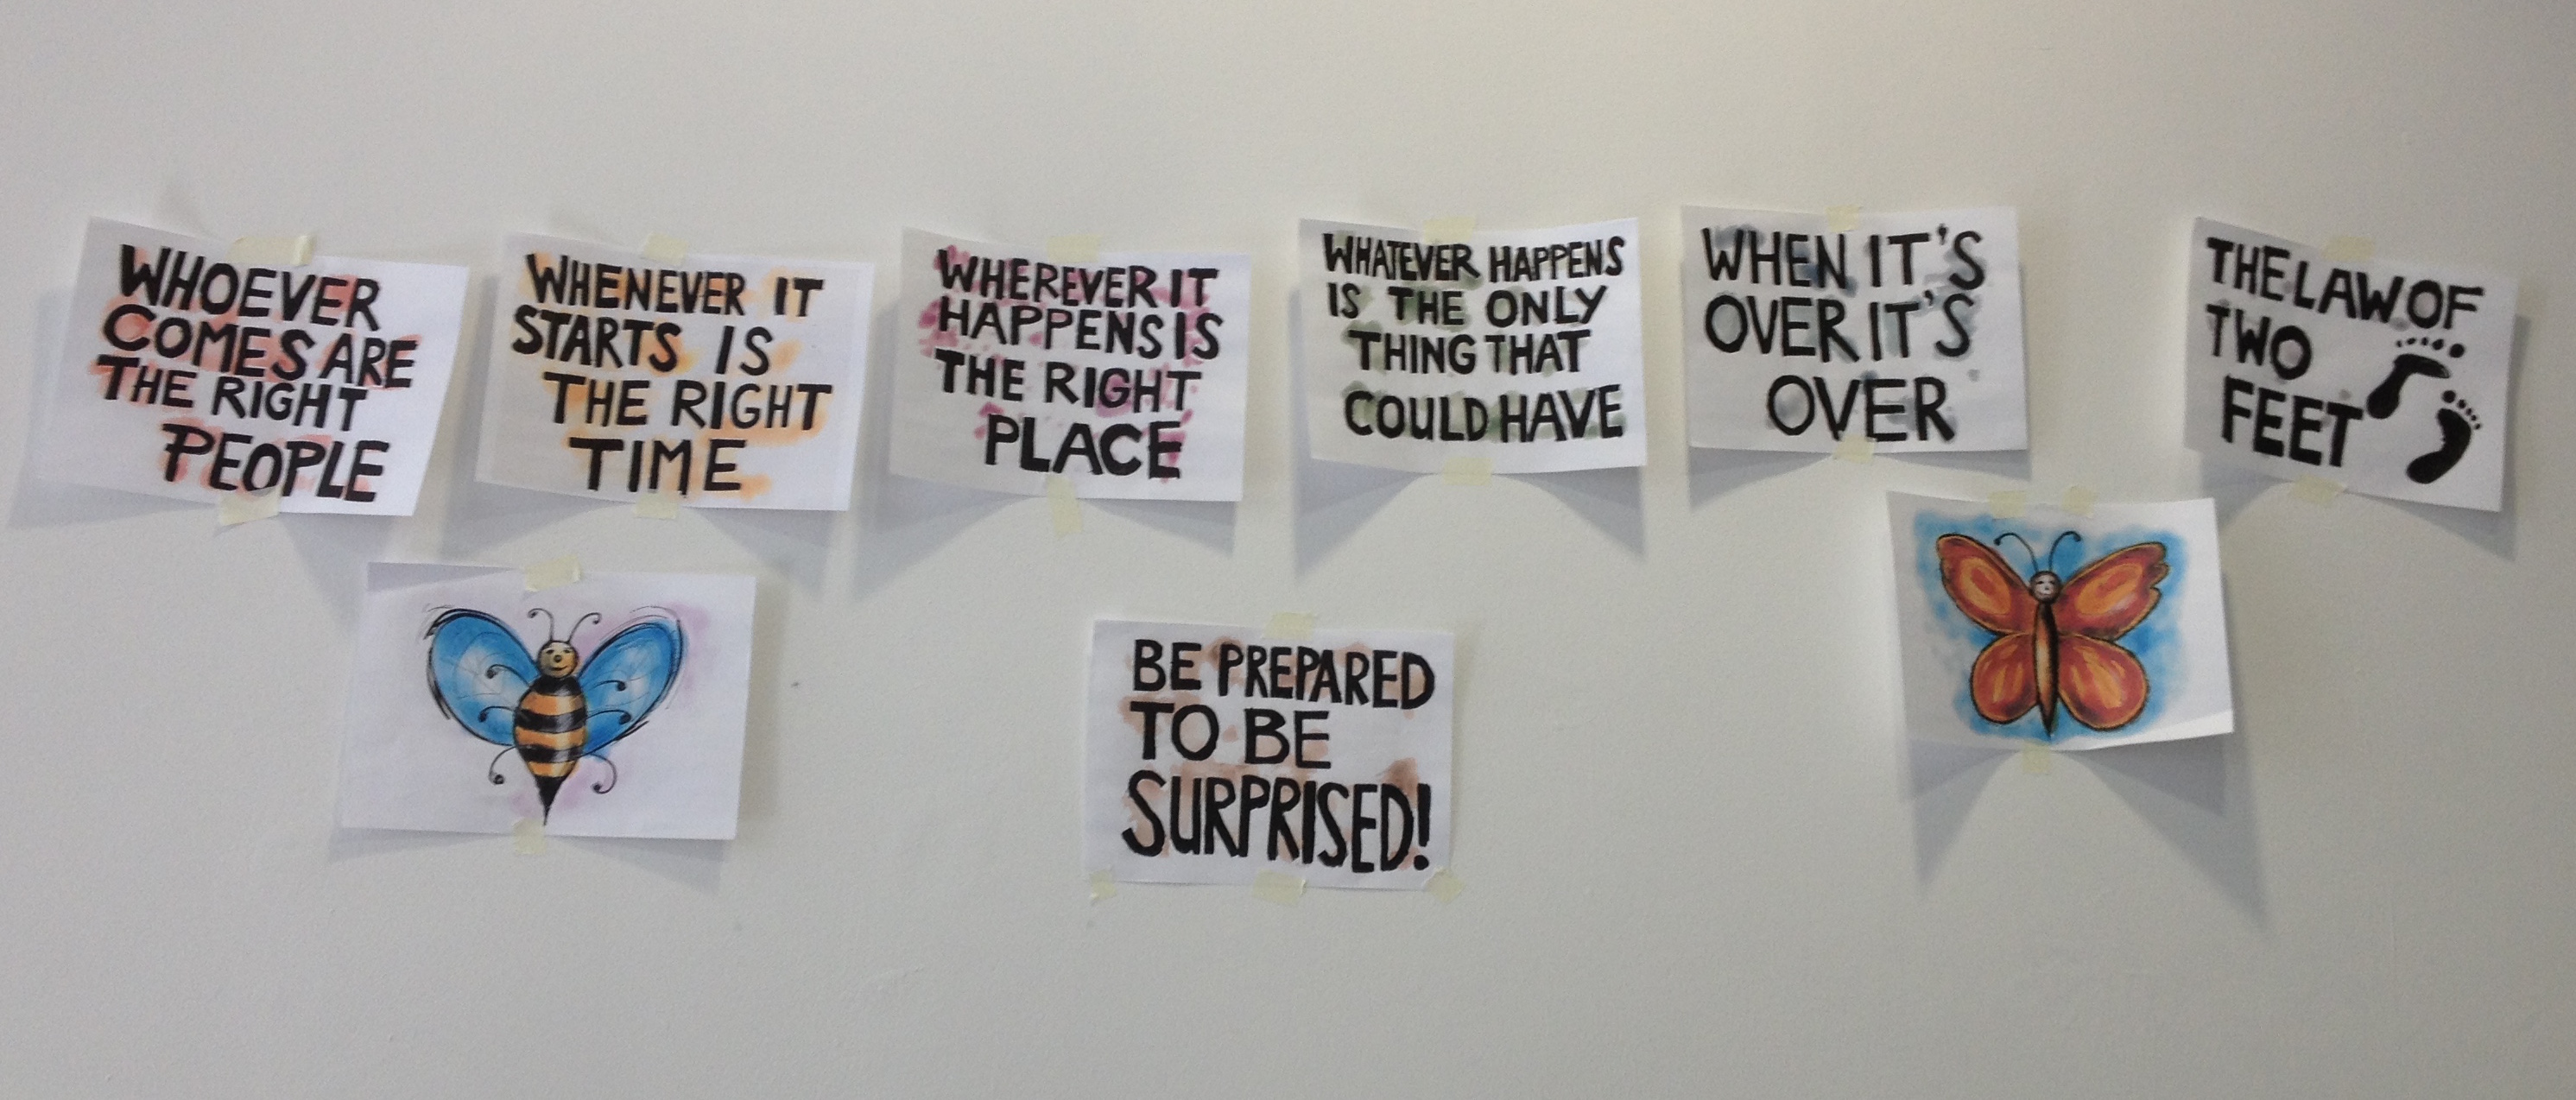 WHOEVER
COMES ARE
THE RIGHT
PEOPLE
WHENEVER IT
STARTS IS
THE RIGHT
TIME
WHEREVER IT
HAPPENS IS
THE RIGHT
PLACE
WHATEVER HAPPENS
IS THE ONLY
THING THAT
COULD HAVE
WHEN IT'S
OVER IT'S
OVER
THE LAW OF
TWO
FEET
BE PREPARED
TO BE
SURPRISED!